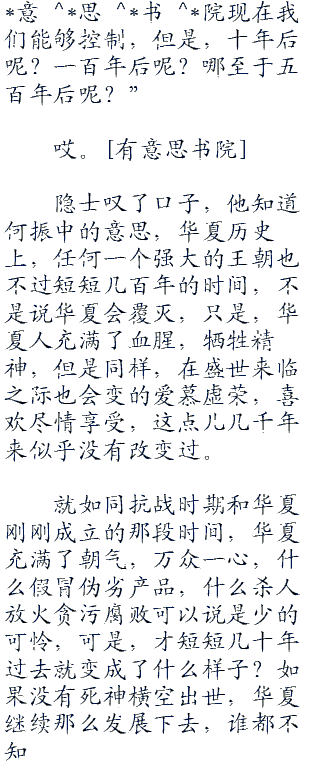 *意 ^*思 ^*书 ^*院现在我
们能够控制，但是，十年后
呢？一百年后呢？哪至于五
百年后呢？”
哎。[有意思书院]
隐士叹了口子，他知道
何振中的意思，华夏历史
上，任何一个强大的王朝也
不过短短几百年的时间，不
是说华夏会覆灭，只是，华
夏人充满了血腥，牺牲精
神，但是同样，在盛世来临
之际也会变的爱慕虚荣，喜
欢尽情享受，这点儿几千年
来似乎没有改变过。
就如同抗战时期和华夏
刚刚成立的那段时间，华夏
充满了朝气，万众一心，什
么假冒伪劣产品，什么杀人
放火贪污腐败可以说是少的
可怜，可是，才短短几十年
过去就变成了什么样子？如
果没有死神横空出世，华夏
继续那么发展下去，谁都不
知